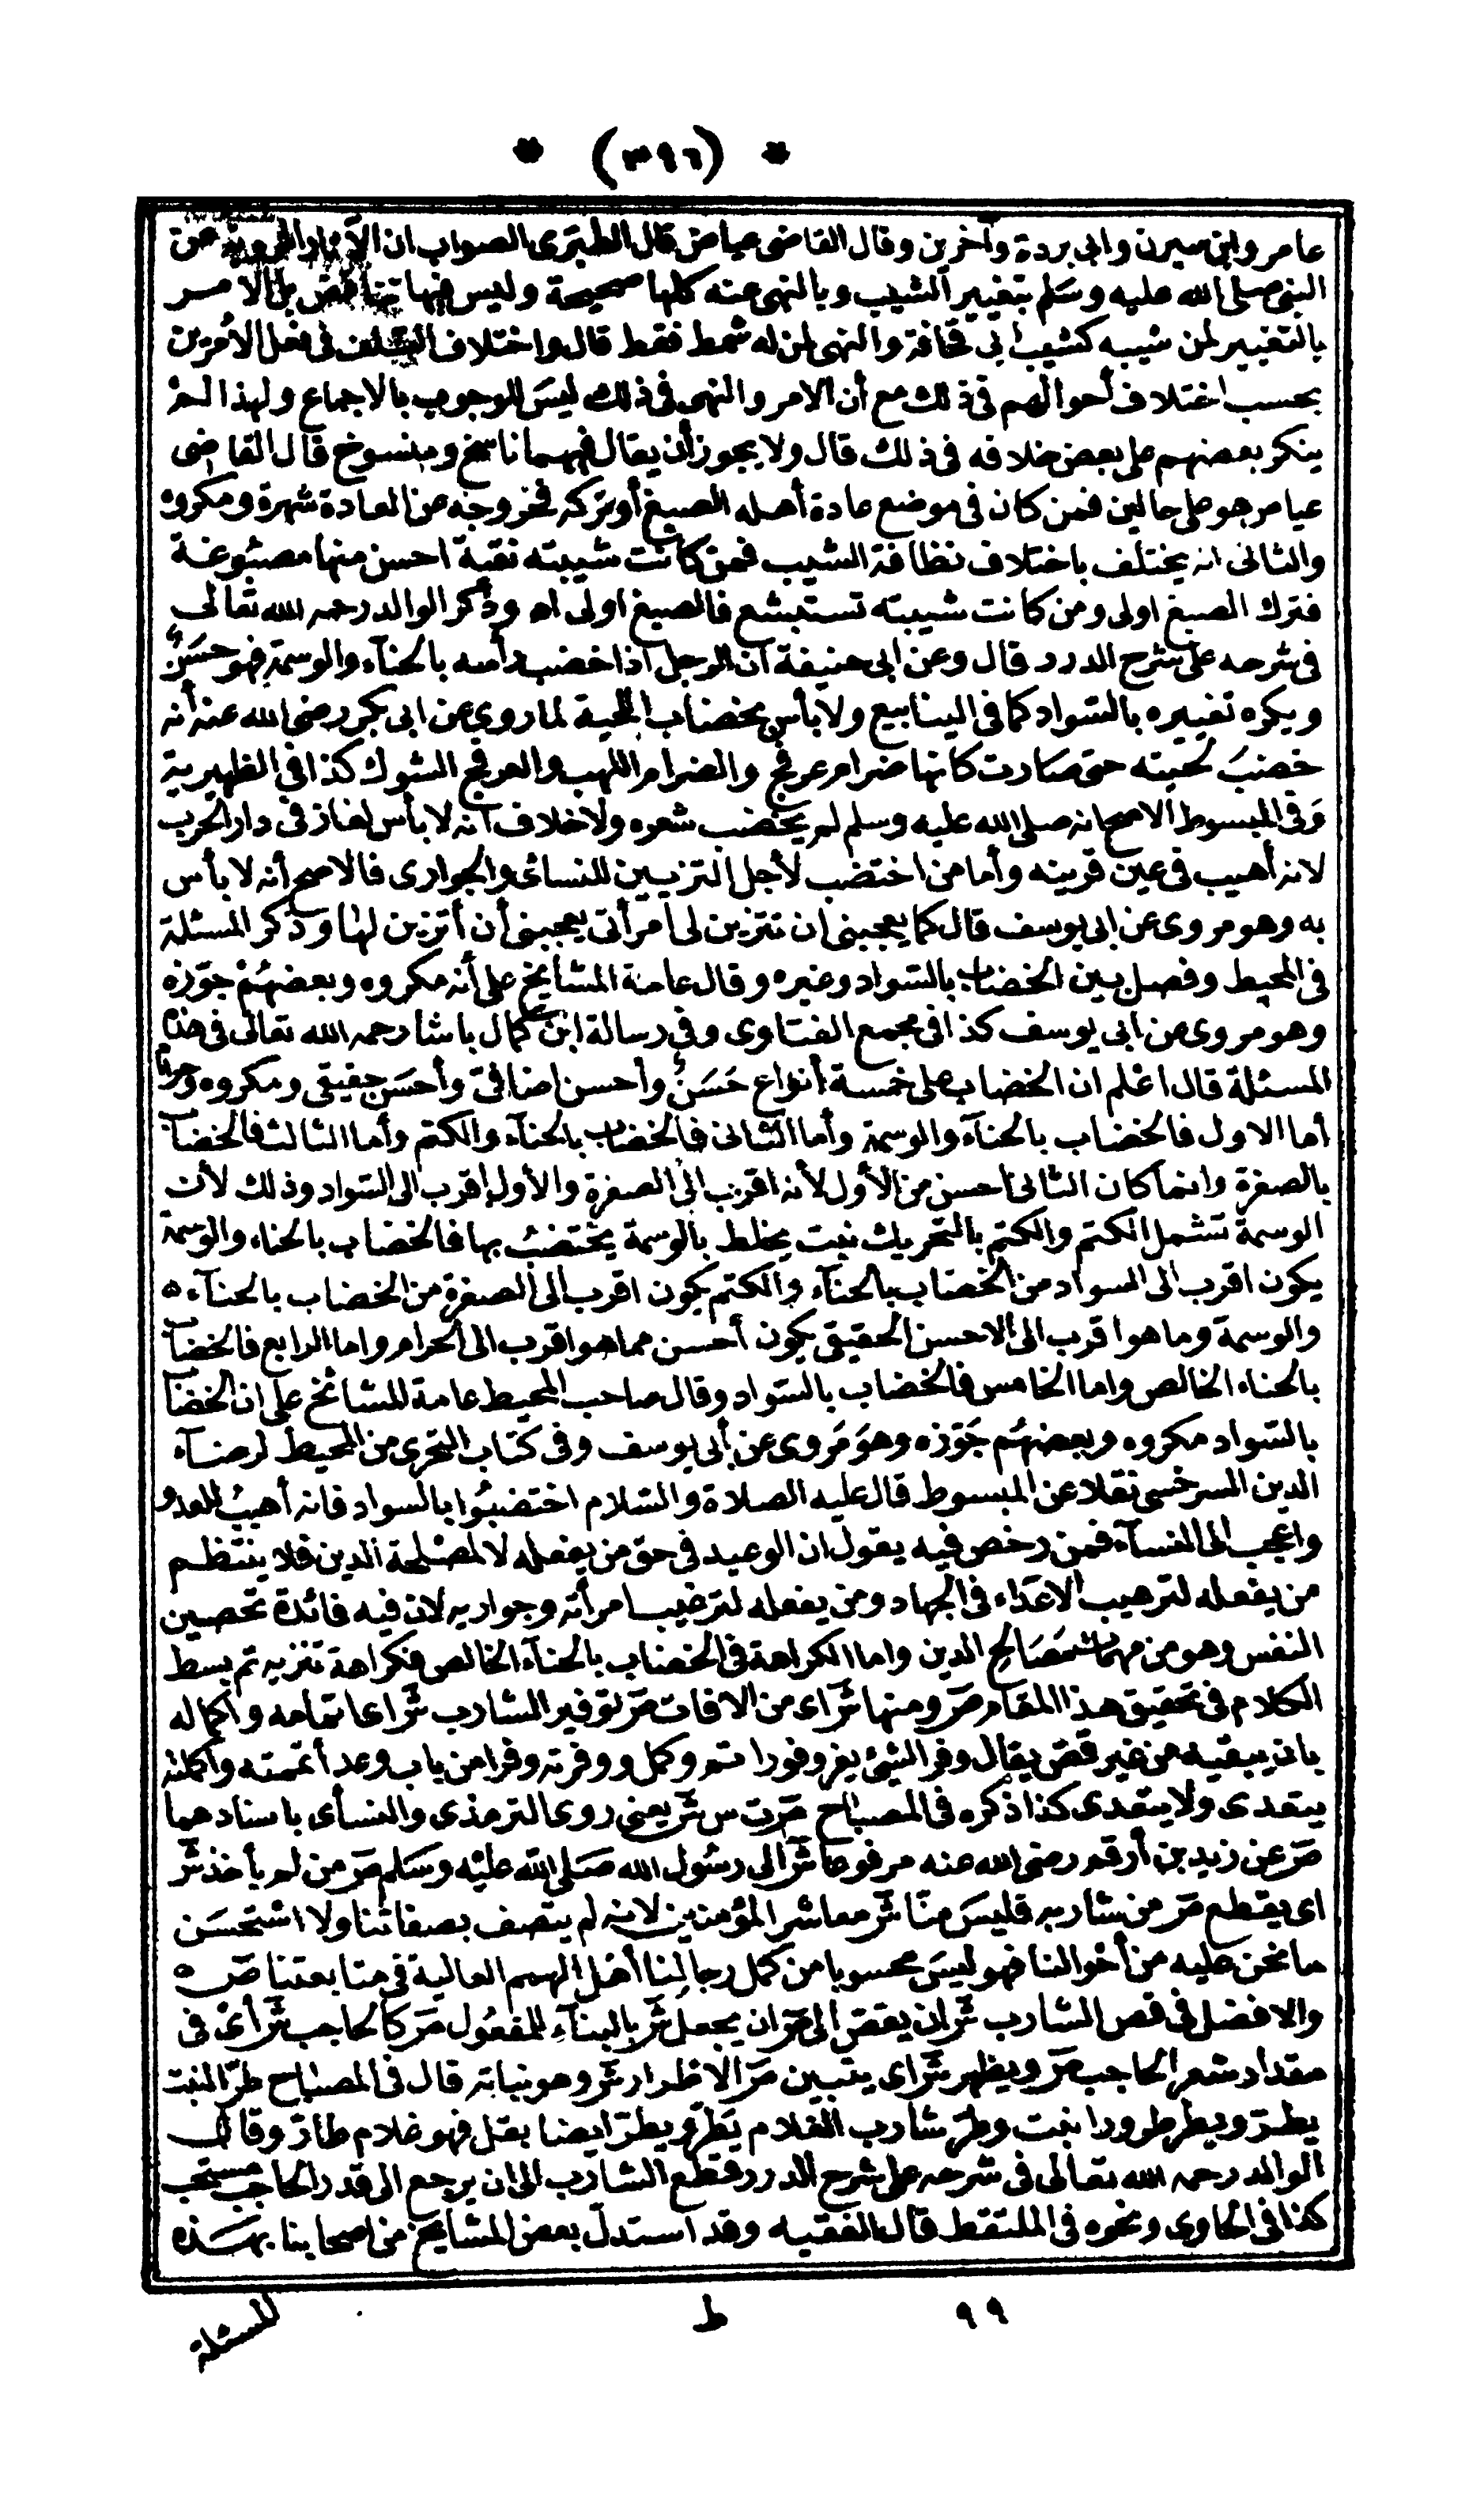 * (٣٩٦) *
عامر وابن سيرين وابى بردة وآخرين وقال القاضى عياض قال الطبرى الصواب ان الآثار المروية عن
النبى صلى الله عليه وسلم بتغيير الشيب وبالنهى عنه كلها صحيحة وليس فيها تناقض بل الامر
بالتغيير لمن شيبه كشيب ابى قحافة والنهى لمن له شمط فقط قال واختلاف السلف فى فعل الأمرين
بحسب اختلاف أحوالهم فى ذلك مع أن الامر والنهى فى ذلك ليس للوجوب بالاجماع ولهذا لم
ينكر بعضهم على بعض خلافه فى ذلك قال ولا يجوز أن يقال فيهما ناسخ ومنسوخ قال القاضى
عياض هو على حالين فمن كان فى موضع عادة أهله الصبغ أو تركه فخروجه عن العادة شهرة ومكروه
والثانى انه يختلف باختلاف نظافة الشيب فمن كانت شيبته نقية احسن منها مصبوغة
فترك الصبغ اولى ومن كانت شيبته تستبشع فالصبغ اولى اه وذكر الوالد رحمه الله تعالى
فى شرحه على شرح الدرر قال وعن ابى حنيفة ان الرجل اذا خضب رأسه بالحنآء والوسمة فهو حسن
ويكره تغييره بالسواد كما فى الينابيع ولا بأس بخضاب اللحية لما روى عن ابى بكر رضى الله عنه أنه
خضب لحيته حتى صارت كانها ضرام عرفج والضرام اللهب والعرفج الشوك كذا فى الظهيرية
وفى المبسوط الاصح انه صلى الله عليه وسلم لم يخضب شعره ولا خلاف انه لا بأس لغاز فى دار الحرب
لانه أهيب فى عين قرينه وأما من اختضب لأجل التزيين للنساء والجوارى فالاصح أنه لا بأس
به وهو مروى عن ابى يوسف قال كما يعجبنى ان تتزين لى امرأتى يعجبنى أن أتزين لها وذكر المسئلة
فى المحيط وفصل بين الخضاب بالسواد وغيره وقال عامة المشايخ على أنه مكروه وبعضهم جوّزه
وهو مروى عن ابى يوسف كذا فى مجمع الفتاوى وفى رسالة ابن كمال باشا رحمه الله تعالى فى هذه
المسئلة قال اعلم ان الخضاب على خمسة أنواع حسن وأحسن اضافى وأحسن حقيقى ومكروه وحرام
أما الاول فالخضاب بالحنآء والوسمة وأما الثانى فالخضاب بالحنآء والكتم وأما الثالث فالخضاب
بالصفرة وانما كان الثانى احسن من الأول لأنه اقرب الى الصفرة والأول اقرب الى السواد وذلك لأن
الوسمة تشمل الكتم والكتم بالتحريك نبت يخلط بالوسمة يختضب بها فالخضاب بالحناء والوسمة
يكون اقرب الى السواد من الخضاب بالحنآء والكتم يكون اقرب الى الصفرة من الخضاب بالحنآء ٥
والوسمة وما هو اقرب الى الاحسن الحقيقى يكون أحسن مما هو اقرب الى الحرام واما الرابع فالخضاب
بالحناء الخالص واما الخامس فالخضاب بالسواد وقال صاحب المحيط عامة المشائخ على ان الخضاب
بالسواد مكروه وبعضهم جوّزه وهو مروى عن أبى يوسف وفى كتاب التحرى من المحيط لرضآء
الدين السرخسى نقلا عن المبسوط قال عليه الصلاة والسلام اختضبوا بالسواد فانه أهيب للعدو
واعجب الى النسآء فمن رخص فيه يقول ان الوعيد فى حق من يفعله لا لمصلحة الدين فلا ينتظم
من يفعله لترهيب الاعداء فى الجهاد ومن يفعله لترغيب امرأته وجواريه لان فيه فائدة تحصين
النفس وهو من مهمات مصالح الدين واما الكراهة فى الخضاب بالحنآء الخالص فكراهة تنزيه ثم بسط
الكلام فى تحقيق هذا المقام ص ومنها ش اى من الافات ص توفير الشارب ش اى اتمامه واكماله
بان يبقيه من غير قص يقال وفر الشئ يفر وفورا تم وكمل ووفرته وفرا من باب وعد أتممته وأكملته
يتعدى ولا يتعدى كذا ذكره فى المصباح ص ت س ش يعنى روى الترمذى والنسأى باسنادهما
ص عن زيد بن أرقم رضى الله عنه مرفوعا ش الى رسول الله صلى الله عليه وسلم ص من لم يأخذ ش
اى يقطع ص من شاربه فليس منا ش معاشر المؤمنين لانه لم يتصف بصفاتنا ولا استحسن
ما نحن عليه من أحوالنا فهو ليس محسوبا من كمل رجالنا أهل الهمم العالية فى متابعتنا ص ٥
والافضل فى قص الشارب ش ان يقص الى ص ان يجعل ش بالبنآء للمفعول ص كالحاجب ش أى فى
مقدار شعر الحاجب ص ويظهر ش اى يتبين ص الاطرار ش وهو نباته قال فى المصباح طرّ النبت
يطرّ ويطر طرورا نبت وطر شارب الغلام يطر ويطرّ ايضا بقل فهو غلام طارّ وقال
الوالد رحمه الله تعالى فى شرحه على شرح الدرر قطع الشارب الى ان يرجع الى قدر الحاجب مستحب
كذا فى الحاوى ونحوه فى الملتقط قال الفقيه وقد استدل بعض المشايخ من اصحابنا بهذه
٩٩ ط المسئلة